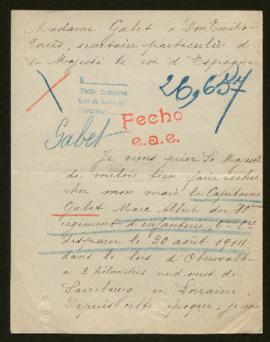 Madame Gabet à Don Emilio
Torrès, secrétaire particulier de
Sa Majesté le roi d'Espagne
26,657
Gabet
Fecho
e.a.e.
Je viens prier Sa Majesté
de vouloir bien faire recher
cher mon mari le Capitaine
Gabet Marc Albert du
régiment d'infanterie
disparu le 20 août 1914
dans le bois d'Oberwald
à 2 kilomètres nord-ouest de
Sarrebourg en Lorraine.
Depuis cette époque, je